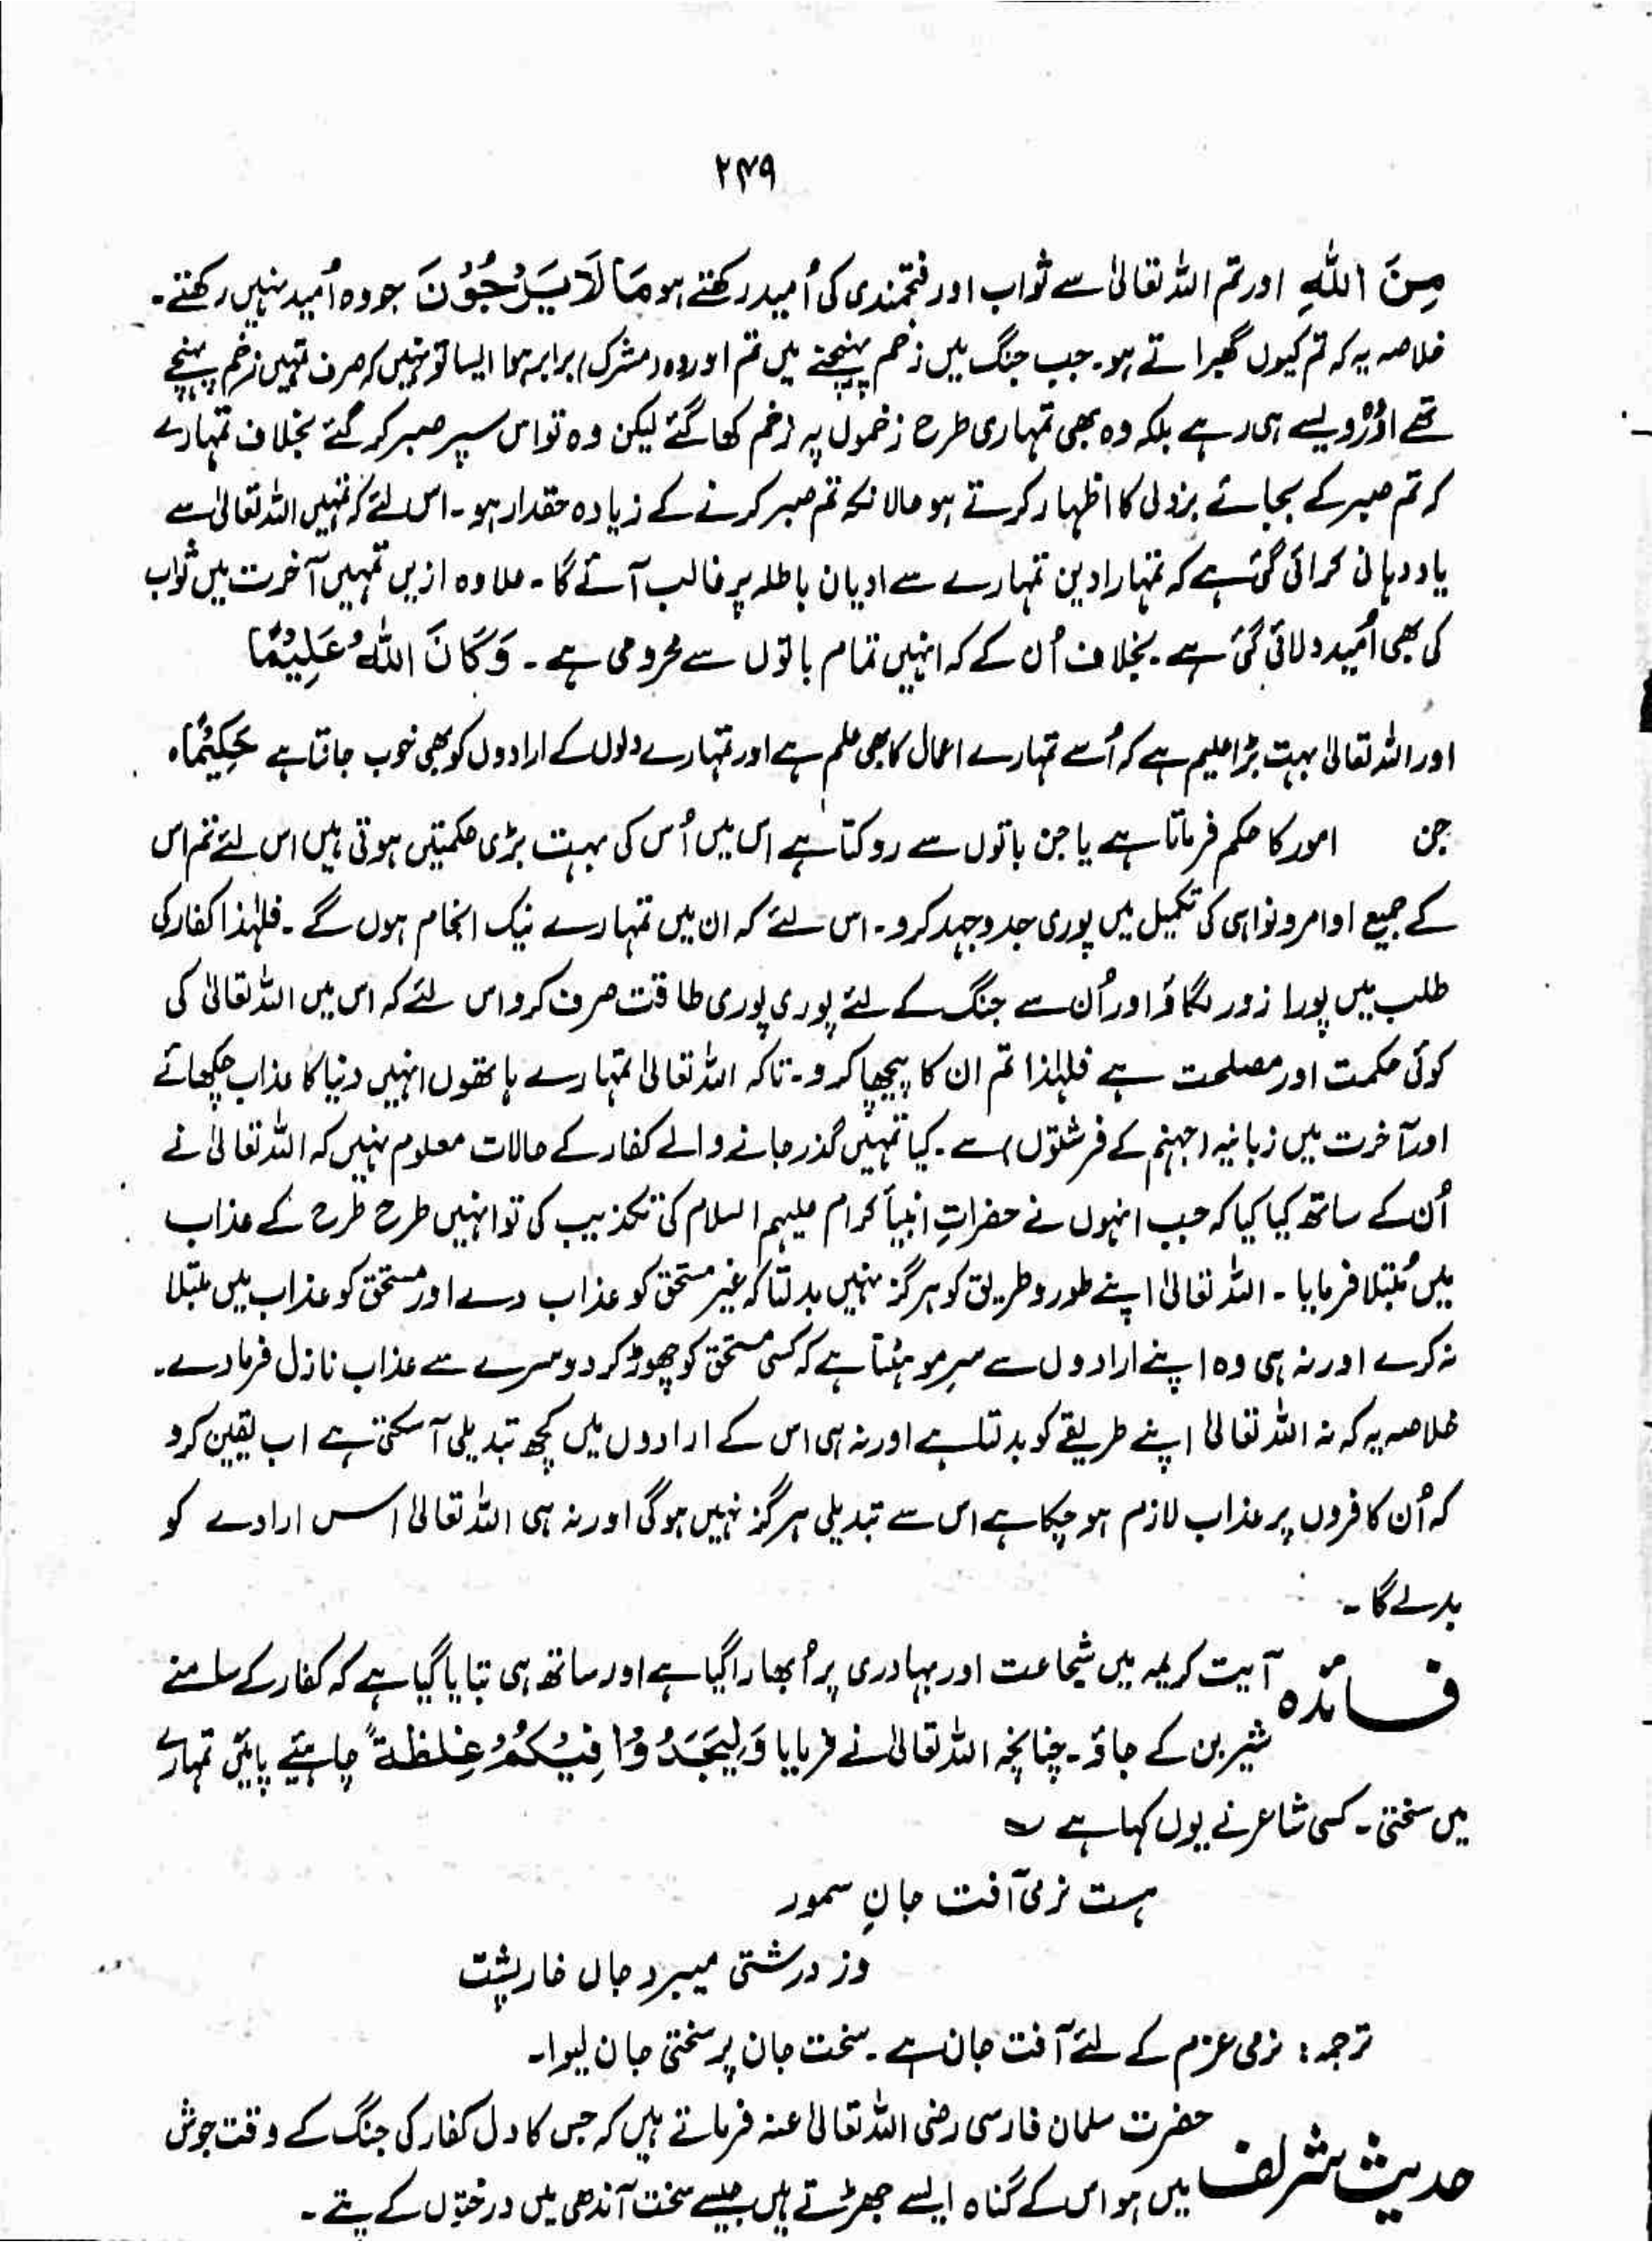 ۲۴۹
مِنَ اللّٰهِ اور تم اللہ تعالیٰ سے ثواب اور فتحمندی کی اُمید رکھتے ہو مَا لَا يَرْجُوْنَ جو وہ اُمید نہیں رکھتے۔
خلاصہ یہ کہ تم کیوں گھبراتے ہو۔ جب جنگ میں زخم پہنچنے میں تم اور وہ (مشرک) برابر ہو ایسا تو نہیں کہ صرف تمہیں زخم پہنچے
تھے اور وُہ ویسے ہی رہے بلکہ وہ بھی تمہاری طرح زخموں پہ زخم کھا گئے لیکن وہ تو اس پر صبر کر گئے بخلاف تمہارے
کہ تم صبر کے بجائے بزدلی کا اظہار کرتے ہو حالانکہ تم صبر کرنے کے زیادہ حقدار ہو۔ اس لئے کہ تمہیں اللہ تعالیٰ سے
یاد دہانی کرائی گئی ہے کہ تمہارا دین تمہارے سے ادیان باطلہ پر غالب آئے گا۔ علاوہ ازیں تمہیں آخرت میں ثواب
کی بھی اُمید دلائی گئی ہے۔ بخلاف اُن کے کہ انہیں تمام باتوں سے محرومی ہے۔ وَكَانَ اللّٰهُ عَلِيْمًا
اور اللہ تعالیٰ بہت بڑا علیم ہے کہ اُسے تمہارے اعمال کا بھی علم ہے اور تمہارے دلوں کے ارادوں کو بھی خوب جانتا ہے حَكِيْمًا ہ
جن امور کا حکم فرماتا ہے یا جن باتوں سے روکتا ہے اس میں اُس کی بہت بڑی حکمتیں ہوتی ہیں اس لئے تم اس
کے جمیع اوامر و نواہی کی تکمیل میں پوری جدوجہد کرو۔ اس لئے کہ ان میں تمہارے نیک انجام ہوں گے۔ فلہٰذا کفار کی
طلب میں پورا زور لگاؤ اور اُن سے جنگ کے لئے پوری پوری طاقت صرف کرو اس لئے کہ اس میں اللہ تعالیٰ کی
کوئی حکمت اور مصلحت ہے فلہٰذا تم ان کا پیچھا کرو۔ تاکہ اللہ تعالیٰ تمہارے ہاتھوں انہیں دنیا کا عذاب چکھائے
اور آخرت میں زبانیہ (جہنم کے فرشتوں) سے۔ کیا تمہیں گذر جانے والے کفار کے حالات معلوم نہیں کہ اللہ تعالیٰ نے
اُن کے ساتھ کیا کیا کہ جب انہوں نے حضراتِ انبیأ کرام علیہم السلام کی تکذیب کی تو انہیں طرح طرح کے عذاب
میں مُبتلا فرمایا۔ اللہ تعالیٰ اپنے طور و طریق کو ہرگز نہیں بدلتا کہ غیر مستحق کو عذاب دے اور مستحق کو عذاب میں مبتلا
نہ کرے اور نہ ہی وہ اپنے ارادوں سے سرِ مو ہٹتا ہے کہ کسی مستحق کو چھوڑ کر دوسرے سے عذاب نازل فرمادے۔
خلاصہ یہ کہ نہ اللہ تعالیٰ اپنے طریقے کو بدلتا ہے اور نہ ہی اس کے ارادوں میں کچھ تبدیلی آ سکتی ہے اب یقین کرو
کہ اُن کافروں پر عذاب لازم ہو چکا ہے اس سے تبدیلی ہرگز نہیں ہوگی اور نہ ہی اللہ تعالیٰ اس ارادے کو
بدلے گا۔
فائدہ آیت کریمہ میں شجاعت اور بہادری پر اُبھارا گیا ہے اور ساتھ ہی بتایا گیا ہے کہ کفار کے سامنے
شیر بن کے جاؤ۔ چنانچہ اللہ تعالیٰ نے فرمایا وَلِيَجِدُوْا فِيْكُمْ غِلْظَةً چاہئیے پائیں تمہارے
میں سختی۔ کسی شاعر نے یوں کہا ہے ؎
ہست نرمی آفت جانِ سمور
وز درشتی میبرد جاں خارپشت
ترجمہ: نرمی عزم کے لئے آفت جان ہے۔ سخت جان پر سختی جان لیوا۔
حدیث شریف حضرت سلمان فارسی رضی اللہ تعالیٰ عنہ فرماتے ہیں کہ جس کا دل کفار کی جنگ کے وقت جوش
میں ہو اس کے گناہ ایسے جھڑتے ہیں جیسے سخت آندھی میں درختوں کے پتے۔